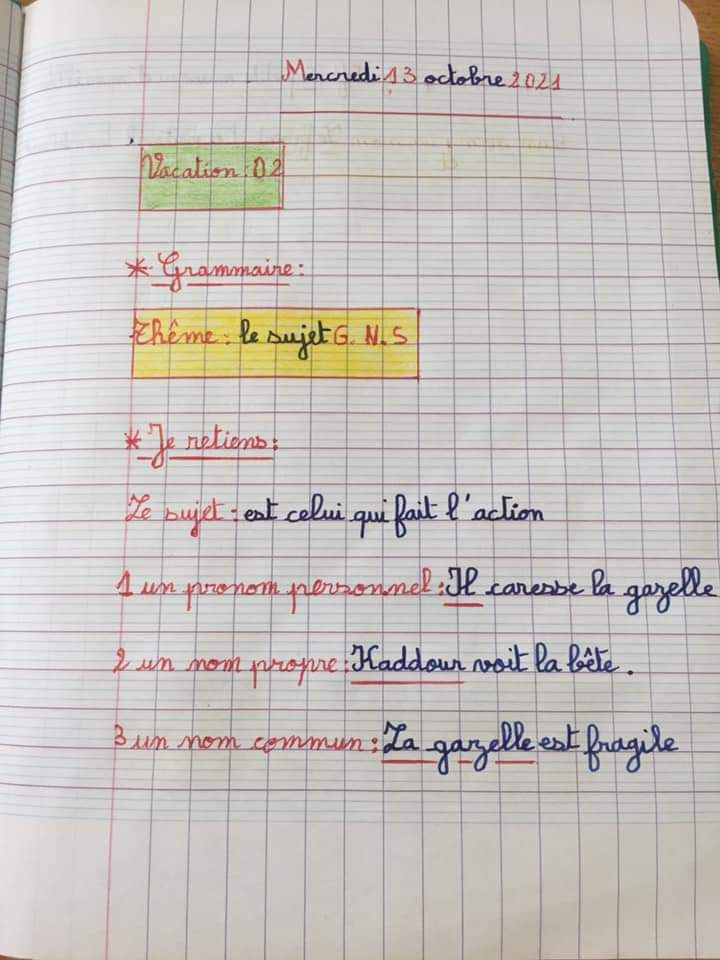 Mercredi 13 octobre 2021
Vacation : 02
* Grammaire :
Thême : le sujet G. N. S
* Je retiens :
Le sujet : est celui qui fait l'action
1 un pronom personnel : Il caresse la gazelle
2 un nom propre : Kaddour voit la bête .
3 un nom commun : La gazelle est fragile